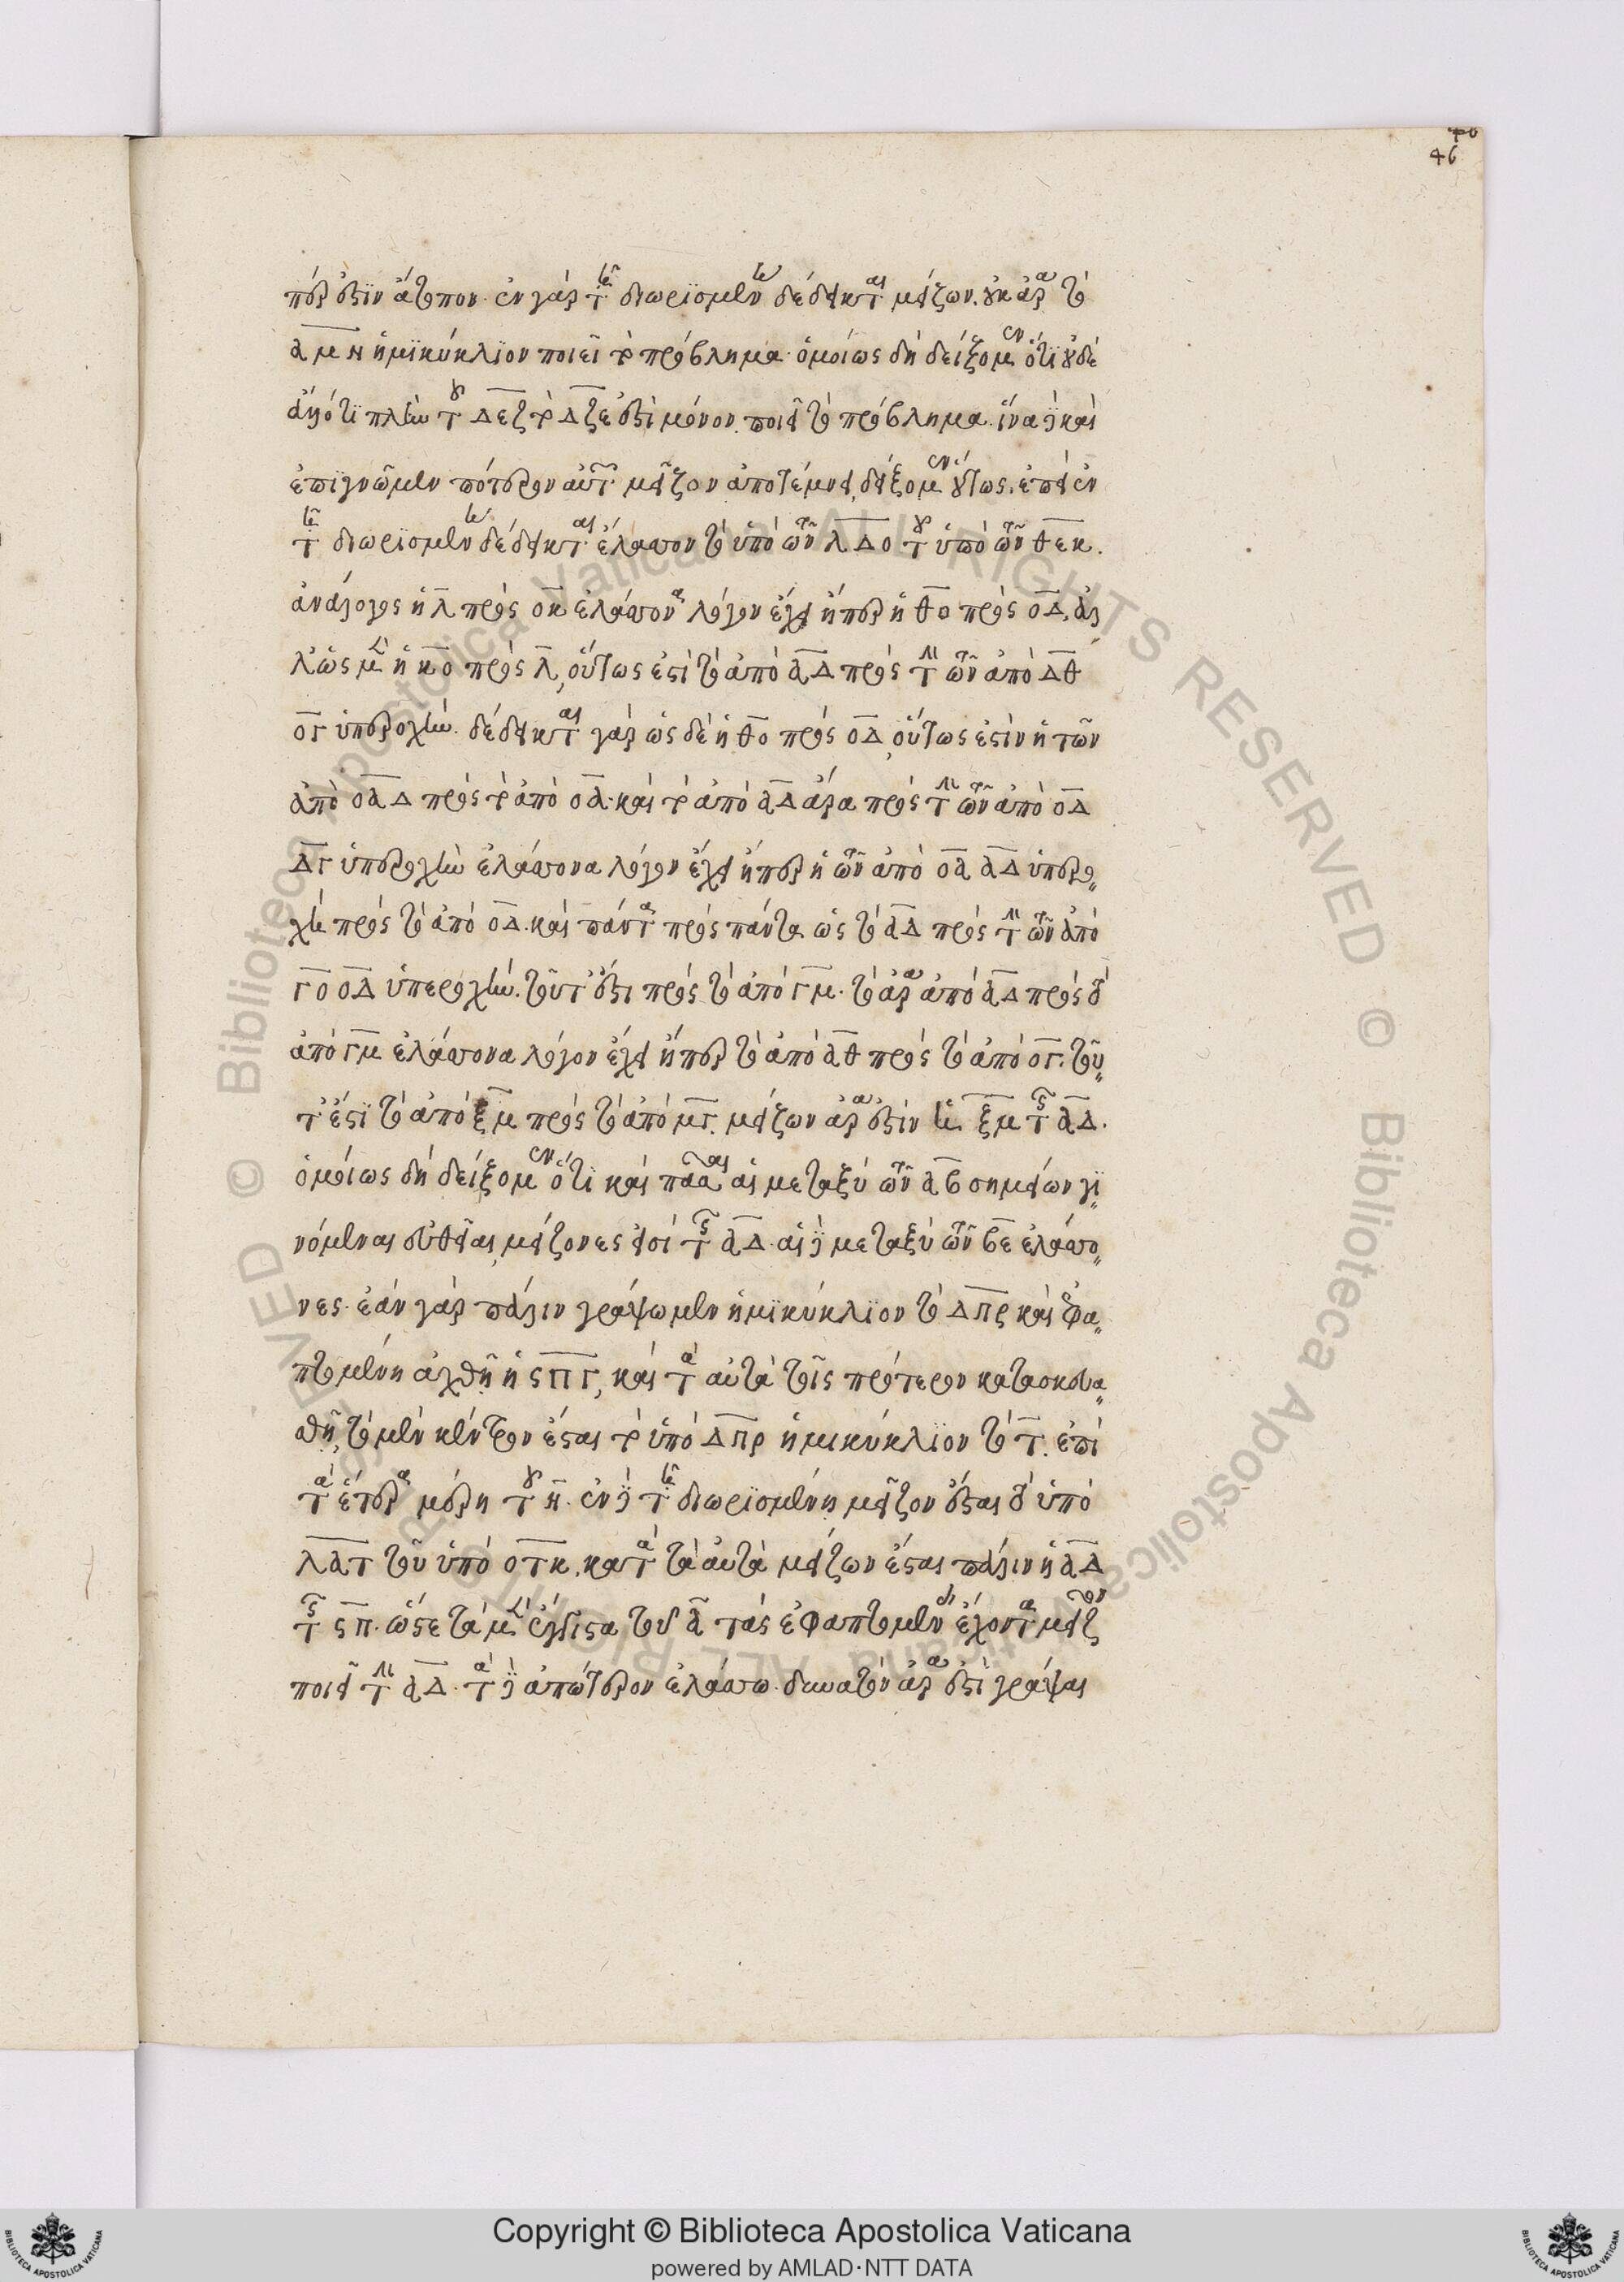 46
περ ἐστὶν ἄτοπον. ἐν γὰρ τῇ διωρισμένῃ δέδεικται μείζων. οὐκ ἄρα τὸ
ΑΜΝ ἡμικύκλιον ποιεῖ τὸ πρόβλημα. ὁμοίως δὴ δείξομεν ὅτι οὐδὲ
ἄλλό τι πλὴν τοῦ ΔΕΖ τὸ ΔΖΕ ἐστὶ μόνον ποιεῖ τὸ πρόβλημα. ἵνα δὲ καὶ
ἐπιγνῶμεν πότερον αὐτῶν μεῖζον ἀποτέμνει, δείξομεν οὕτως. ἐπεὶ ἐν
τῇ διωρισμένῃ δέδεικται ἔλαττον τὸ ὑπὸ τῶν ΛΔΟ τοῦ ὑπὸ τῶν ΘΕΚ.
ἀνάλογος ἡ Λ πρὸς ΟΚ ἐλάττονα λόγον ἔχει ἤπερ ἡ ΘΟ πρὸς ΟΔ, ἀλ
λ' ὡς μὲν ἡ ΚΟ πρὸς Λ, οὕτως ἐστὶ τὸ ἀπὸ ΑΔ πρὸς τὴν τῶν ἀπὸ ΔΘ
ΟΓ ὑπεροχήν. δέδεικται γὰρ ὡς δὲ ἡ ΘΟ πρὸς ΟΔ, οὕτως ἐστὶν ἡ τῶν
ἀπὸ ΟΑΔ πρὸς τὸ ἀπὸ ΟΑ. καὶ τὸ ἀπὸ ΑΔ ἄρα πρὸς τὴν τῶν ἀπὸ ΟΔ
ΔΓ ὑπεροχὴν ἐλάττονα λόγον ἔχει ἤπερ ἡ τῶν ἀπὸ ΟΑ ΑΔ ὑπερο
χὴ πρὸς τὸ ἀπὸ ΟΔ. καὶ πάντα πρὸς πάντα ὡς τὸ ΑΔ πρὸς τὴν τῶν ἀπὸ
ΓΟ ΟΔ ὑπεροχήν. τοῦτ' ἔστι πρὸς τὸ ἀπὸ ΓΜ. τὸ ἄρα ἀπὸ ΑΔ πρὸς τὸ
ἀπὸ ΓΜ ἐλάττονα λόγον ἔχει ἤπερ τὸ ἀπὸ ΑΘ πρὸς τὸ ἀπὸ ΟΓ. τοῦ
τ' ἔστι τὸ ἀπὸ ΞΜ πρὸς τὸ ἀπὸ ΜΓ. μείζων ἄρα ἐστὶν ἡ ΞΜ τῆς ΑΔ.
ὁμοίως δὴ δείξομεν ὅτι καὶ πᾶσαι αἱ μεταξὺ τῶν ΑΒ σημείων γι
νόμεναι εὐθεῖαι, μείζονες εἰσὶ τῆς ΑΔ. αἱ δὲ μεταξὺ τῶν ΒΕ ἐλάττο
νες. ἐὰν γὰρ πάλιν γράψωμεν ἡμικύκλιον τὸ ΔΠΡ καὶ ἐφα
πτομένη ἀχθῇ ἡ ΣΠΓ, καὶ τὰ αὐτὰ τοῖς πρότερον κατασκευα
σθῇ, τὸ μὲν κέντρον ἔσται τὸ ὑπὸ ΔΠΡ ἡμικύκλιον τὸ Τ. ἐπὶ
τὰ ἕτερα μέρη τοῦ Η. ἐν δὲ τῇ διωρισμένῃ μεῖζον ἔσται τὸ ὑπὸ
ΛΑΤ τοῦ ὑπὸ ΟΤΚ. κατὰ τὰ αὐτὰ μείζων ἔσται πάλιν ἡ ΑΔ
τῆς ΣΠ. ὥστε τὰ μὲν ἔγγιστα τοῦ Α τὰς ἐφαπτομένας ἔχοντα μείζον
ποιεῖ τὴν ΑΔ. τὰ δὲ ἀπώτερον ἐλάττω. δυνατὸν ἄρα ἐστὶ γράψαι
Copyright © Biblioteca Apostolica Vaticana
powered by AMLAD·NTT DATA